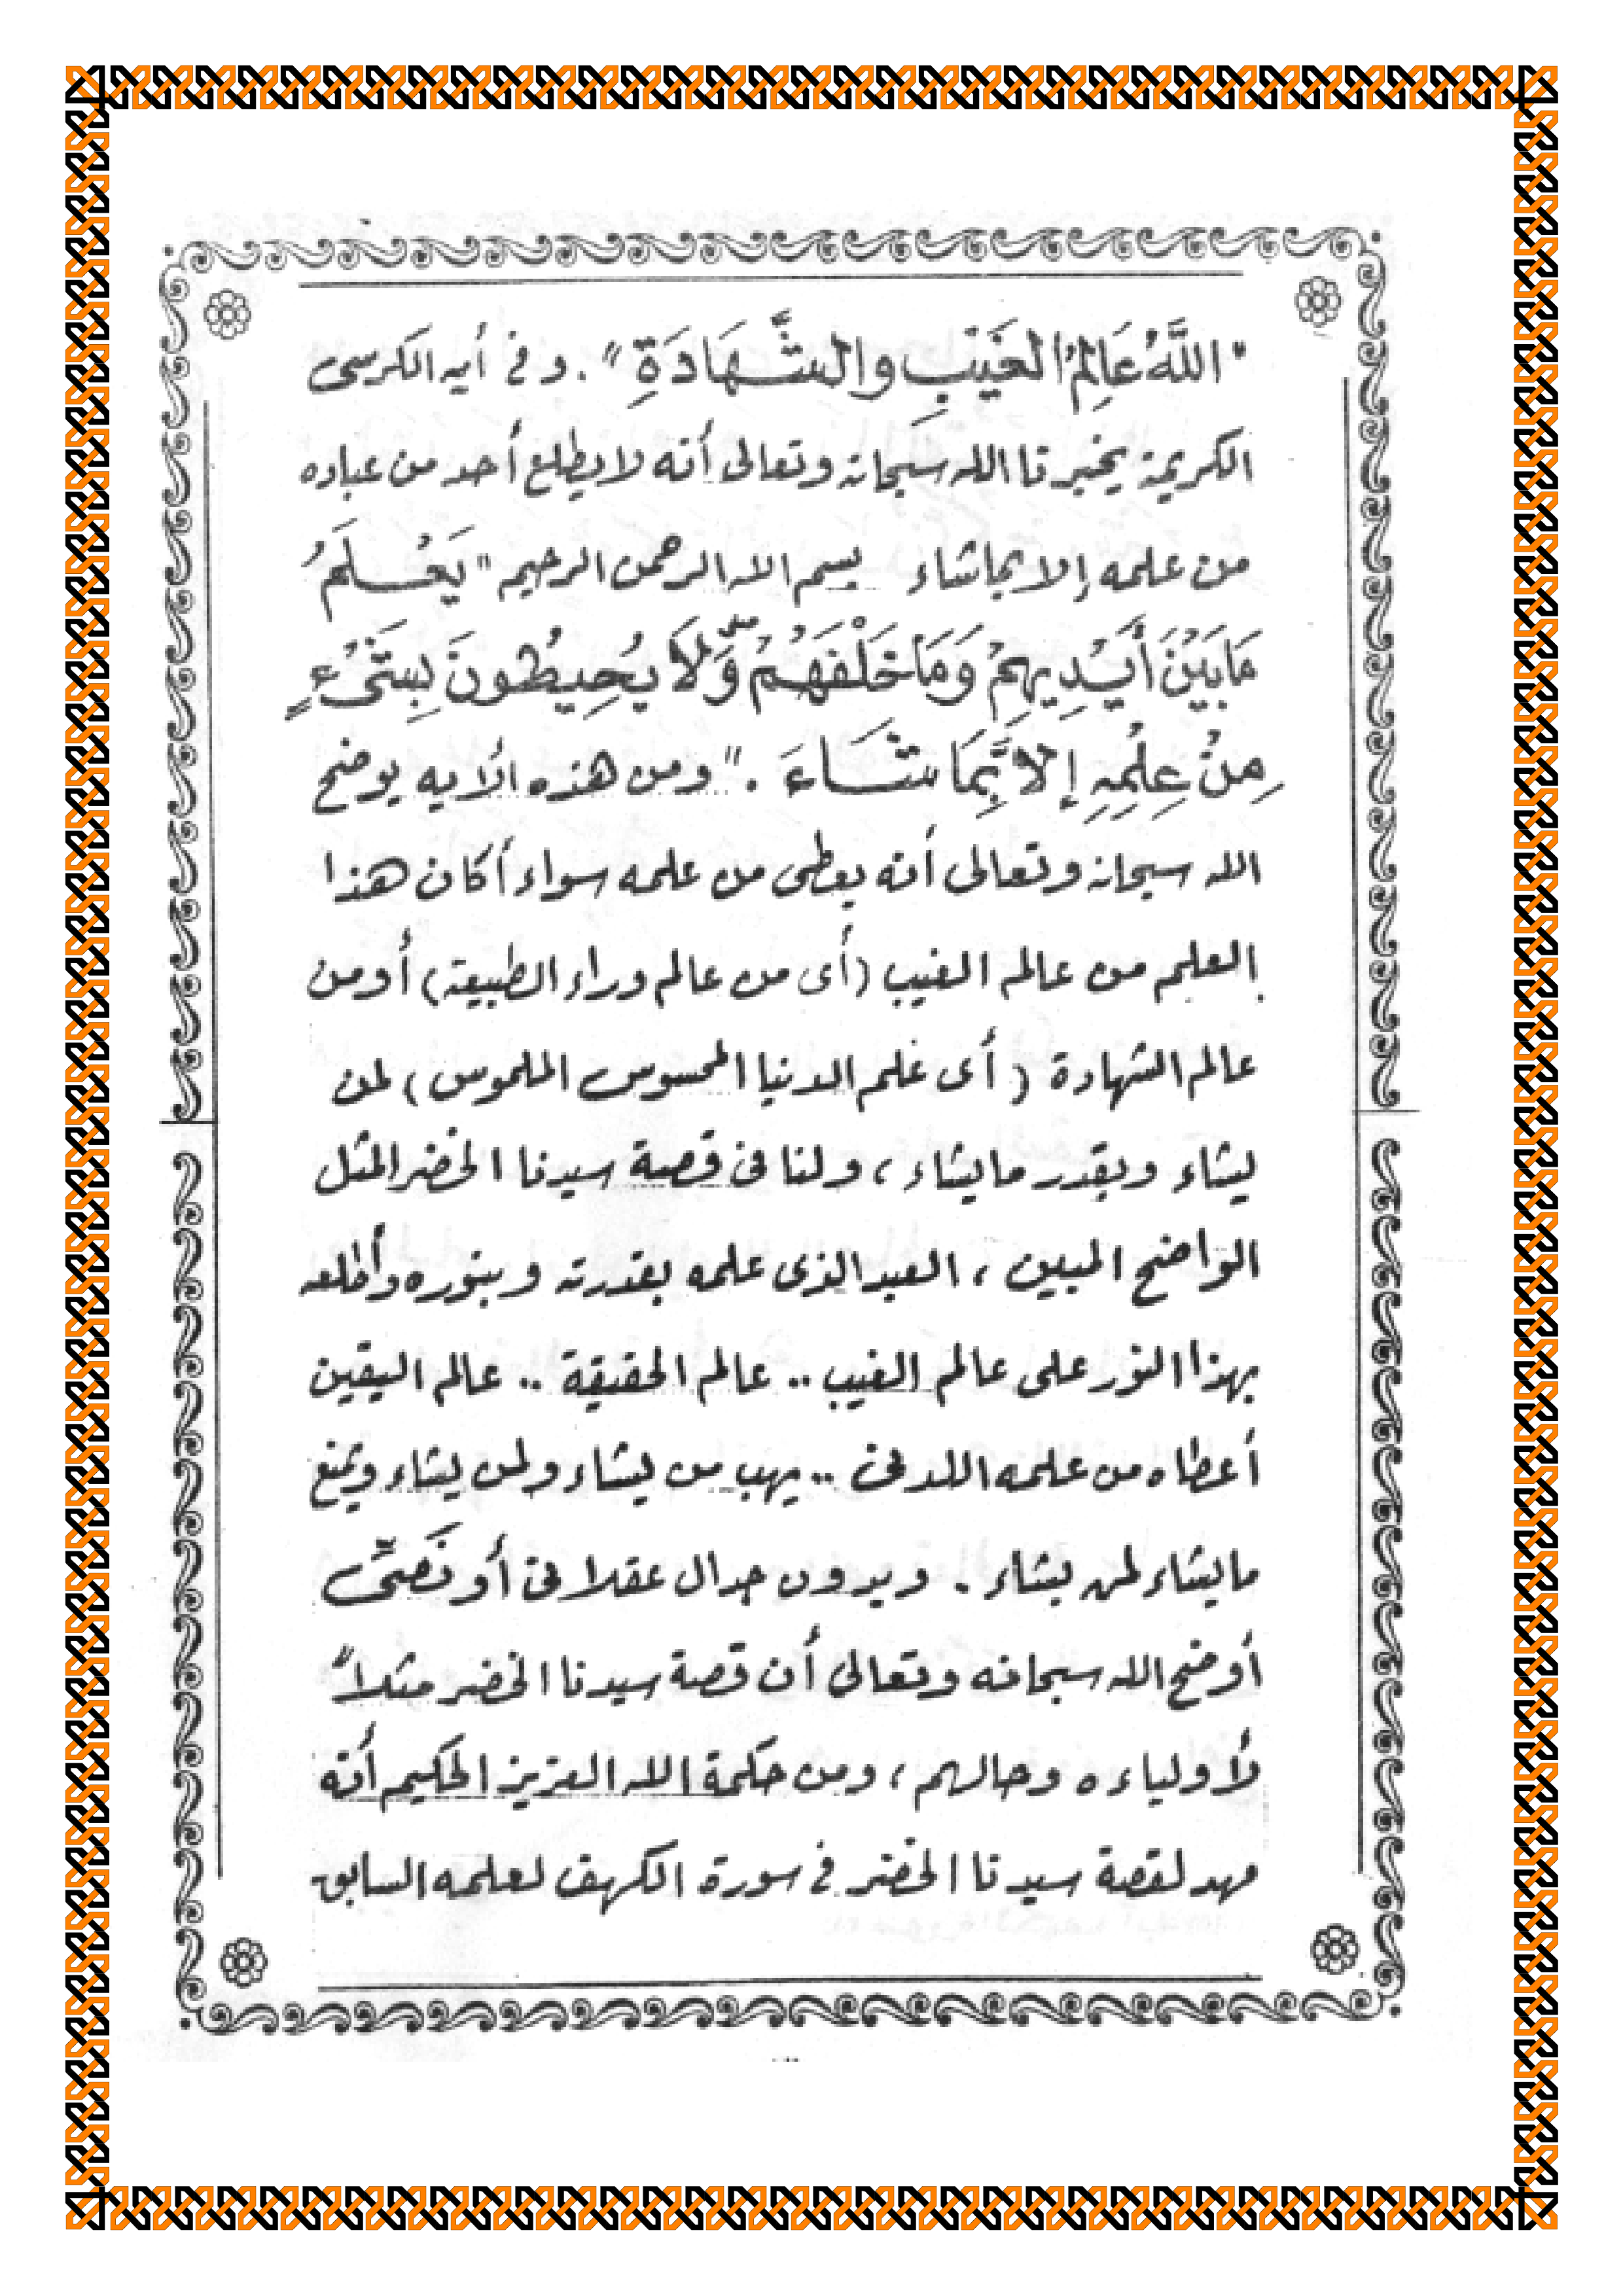 "اللَّهُ عَالِمُ الغَيْبِ والشَّهَادَةِ". وفى أيه الكرسى
الكريمة يخبرنا الله سبحانه وتعالى أنه لا يطلع أحد من عباده
من علمه إلا بما شاء بسم الله الرحمن الرحيم "يَعْلَمُ
مَا بَيْنَ أَيْدِيهِمْ وَمَا خَلْفَهُمْ وَلَا يُحِيطُونَ بِشَىْءٍ
مِنْ عِلْمِهِ إِلَّا بِمَا شَاءَ." ومن هذه الأيه يوضح
الله سبحانه وتعالى أنه يعطى من علمه سواء أكان هذا
العلم من عالم الغيب (أى من عالم وراء الطبيعة) أو من
عالم الشهادة (أى علم الدنيا المحسوس الملموس) لمن
يشاء وبقدر ما يشاء، ولنا فى قصة سيدنا الخضر المثل
الواضح المبين، العبد الذى علمه بقدرته وبنوره وأطلعه
بهذا النور على عالم الغيب .. عالم الحقيقة .. عالم اليقين
أعطاه من علمه اللدنى .. يهب من يشاء ولمن يشاء ويمنع
ما يشاء لمن يشاء. وبدون جدال عقلانى أو نَصِّى
أوضح الله سبحانه وتعالى أن قصة سيدنا الخضر مثلاً
لأولياءه وحالهم، ومن حكمة الله العزيز الحكيم أنه
مهد لقصة سيدنا الخضر فى سورة الكهف لعلمه السابق